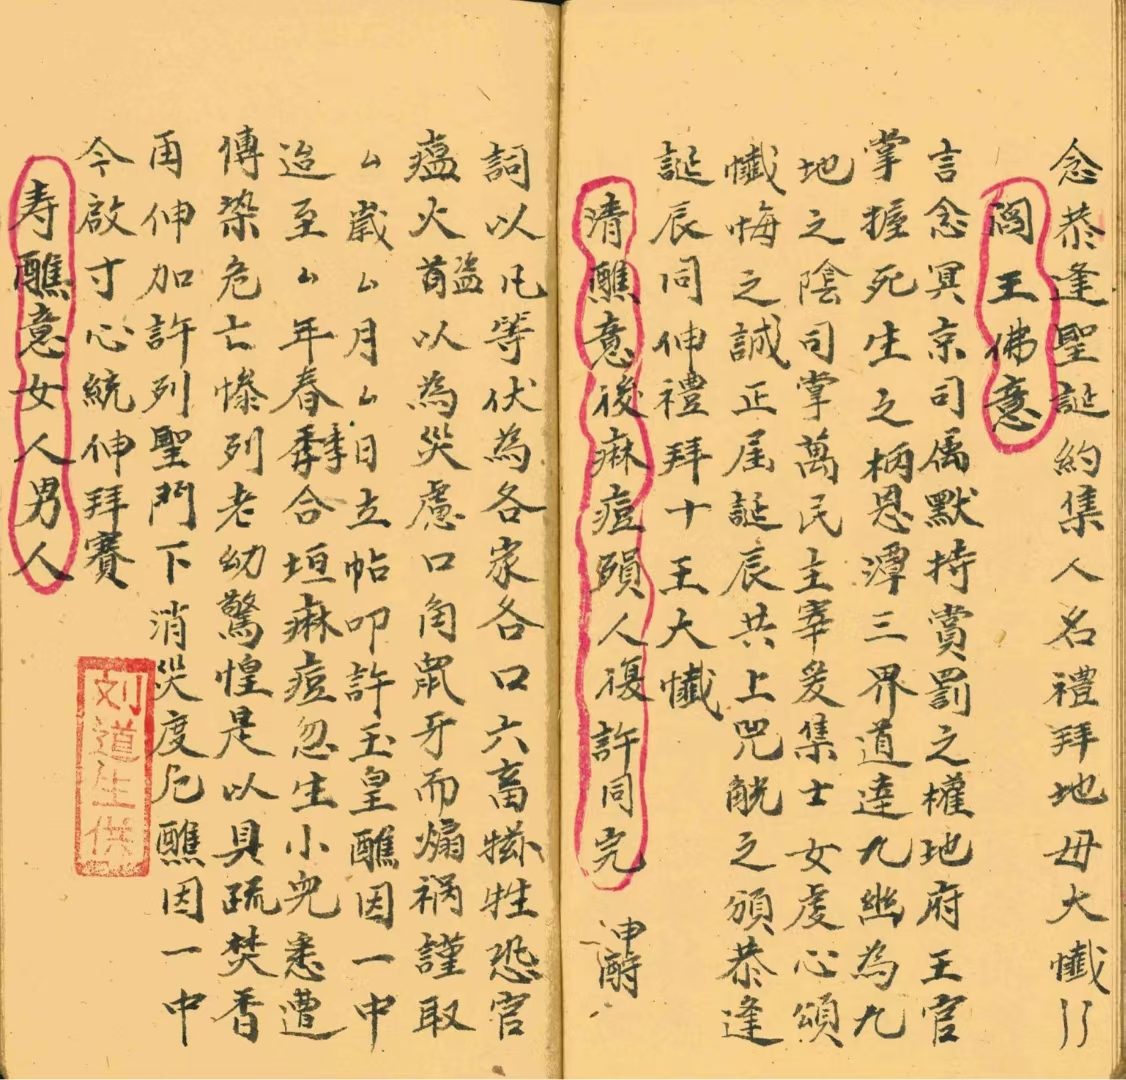 念恭逢聖誕約集人名禮拜地毋大懺
閻王佛意
言念冥京司属默持賞罰之權地府王官
掌握死生之柄恩潭三界道達九幽為九
地之陰司掌萬民主宰爰集士女虔心頌
懺悔之誠正届誕辰共上兕觥之頒恭逢
誕辰同伸禮拜十王大懺
清醮意後麻痘殞人復許同完
詞以凡等伏為各家各口六畜牲恐官
瘟火盜以為災慮口角鼠牙而煽祸謹取
厶歲厶月厶日立帖叩許玉皇醮因一中
迨至厶年春季合垣麻痘忽生小兒悉遭
傳染危亡慘列老幼驚惶是以具疏焚香
再伸加許列聖門下消災度厄醮因一中
今啟寸心統伸拜賽
寿醮意女人男人
刘道生供